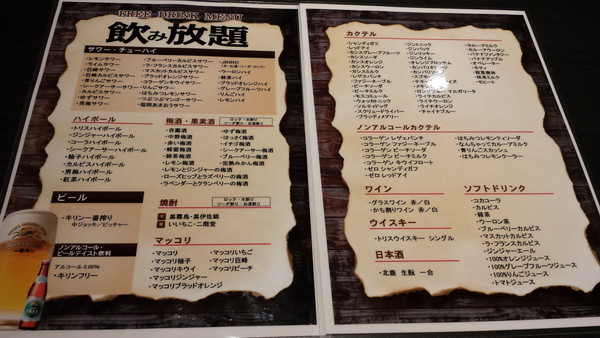 FREE DRINK MENU
飲み放題
サワー・チューハイ
・レモンサワー
・ライムサワー
・巨峰サワー
・巨峰カルピスサワー
・青りんごサワー
・カルピスサワー
・ゆずサワー
・男梅サワー
・ブルーベリーカルピスサワー
・ラ・フランスカルピスサワー
・マスカットカルピスサワー
・ブラッドオレンジサワー
・コラーゲンキウイサワー
・はちみつレモンサワー
・つぶつぶマンゴーサワー
・塩時あまおうサワー
・JINRO
・ウーロンハイ
・緑茶ハイ
・ブラッドオレンジハイ
・グレープフルーツハイ
・りんごハイ
・レモンハイ
ハイボール
・トリスハイボール
・ジンジャーハイボール
・コーラハイボール
・シークアーサーハイボール
・柚子ハイボール
・カルピスハイボール
・男梅ハイボール
・紅茶ハイボール
梅酒・果実酒
ロック・水割り
ソーダ割り・お湯割り
・杏露酒
・中野梅酒
・赤い梅酒
・蜂蜜梅酒
・緑茶梅酒
・レモンとジンジャーの梅酒
・ローズヒップとクランベリーの梅酒
・ラベンダーとクランベリーの梅酒
・ゆず梅酒
・はっさく梅酒
・イチゴ梅酒
・シークアーサー梅酒
・ブルーベリー梅酒
・完熟みかん梅酒
ビール
・キリン一番搾り
中ジョッキ/ピッチャー
焼酎
ロック・水割り
ソーダ割り・お湯割り
芋 黒霧島・黒伊佐錦
麦 いいちこ・二階堂
ノンアルコール・
ビールテイスト飲料
アルコール 0.00%
・キリンフリー
マッコリ
・マッコリ
・マッコリ柚子
・マッコリキウイ
・マッコリジンジャー
・マッコリブラッドオレンジ
・マッコリいちご
・マッコリ巨峰
・マッコリピーチ
カクテル
・シャンディガフ
・レッドアイ
・カシスグレープフルーツ
・カシスソーダ
・カシスオレンジ
・カシスウーロン
・カシスミルク
・レゲエパンチ
・ファジーネーブル
・ピーチソーダ
・ピーチミルク
・モスコミュール
・ウォッカトニック
・ソルティドッグ
・スクリュードライバー
・ブラッディメアリー
・ジントニック
・ジンバック
・ジンリッキー
・ジンライム
・オレンジブロッサム
・カンパリソーダ
・カンパリオレンジ
・スプモーニ
・ライチソーダ
・ライチカルピス
・ライチオレンジ
・ライチウーロン
・キティ
・チャイナブルー
・カルーアミルク
・カルーアウーロン
・バナナファンキー
・バナナアップル
・オペレーター
・キティ
・抹茶ミルク
・モヒート
ノンアルコールカクテル
・コラーゲン レゲェパンチ
・コラーゲン ファジーネーブル
・コラーゲン ピーチソーダ
・コラーゲン ピーチミルク
・コラーゲン キウイフロート
・ゼロ シャンディガフ
・ゼロ レッドアイ
・はちみつレモンティソーダ
・なんちゃってカルーアミルク
・青りんごスカッシュ
・はちみつレモンクーラー
ワイン
・グラスワイン 赤／白
・かち割りワイン 赤／白
ウイスキー
・トリスウイスキー シングル
日本酒
・北鹿 生酛 一合
ソフトドリンク
・コカコーラ
・カルピス
・緑茶
・ウーロン茶
・ブルーベリーカルピス
・マスカットカルピス
・ラ・フランスカルピス
・ジンジャーエール
・100%オレンジジュース
・100%グレープフルーツジュース
・100%りんごジュース
・トマトジュース